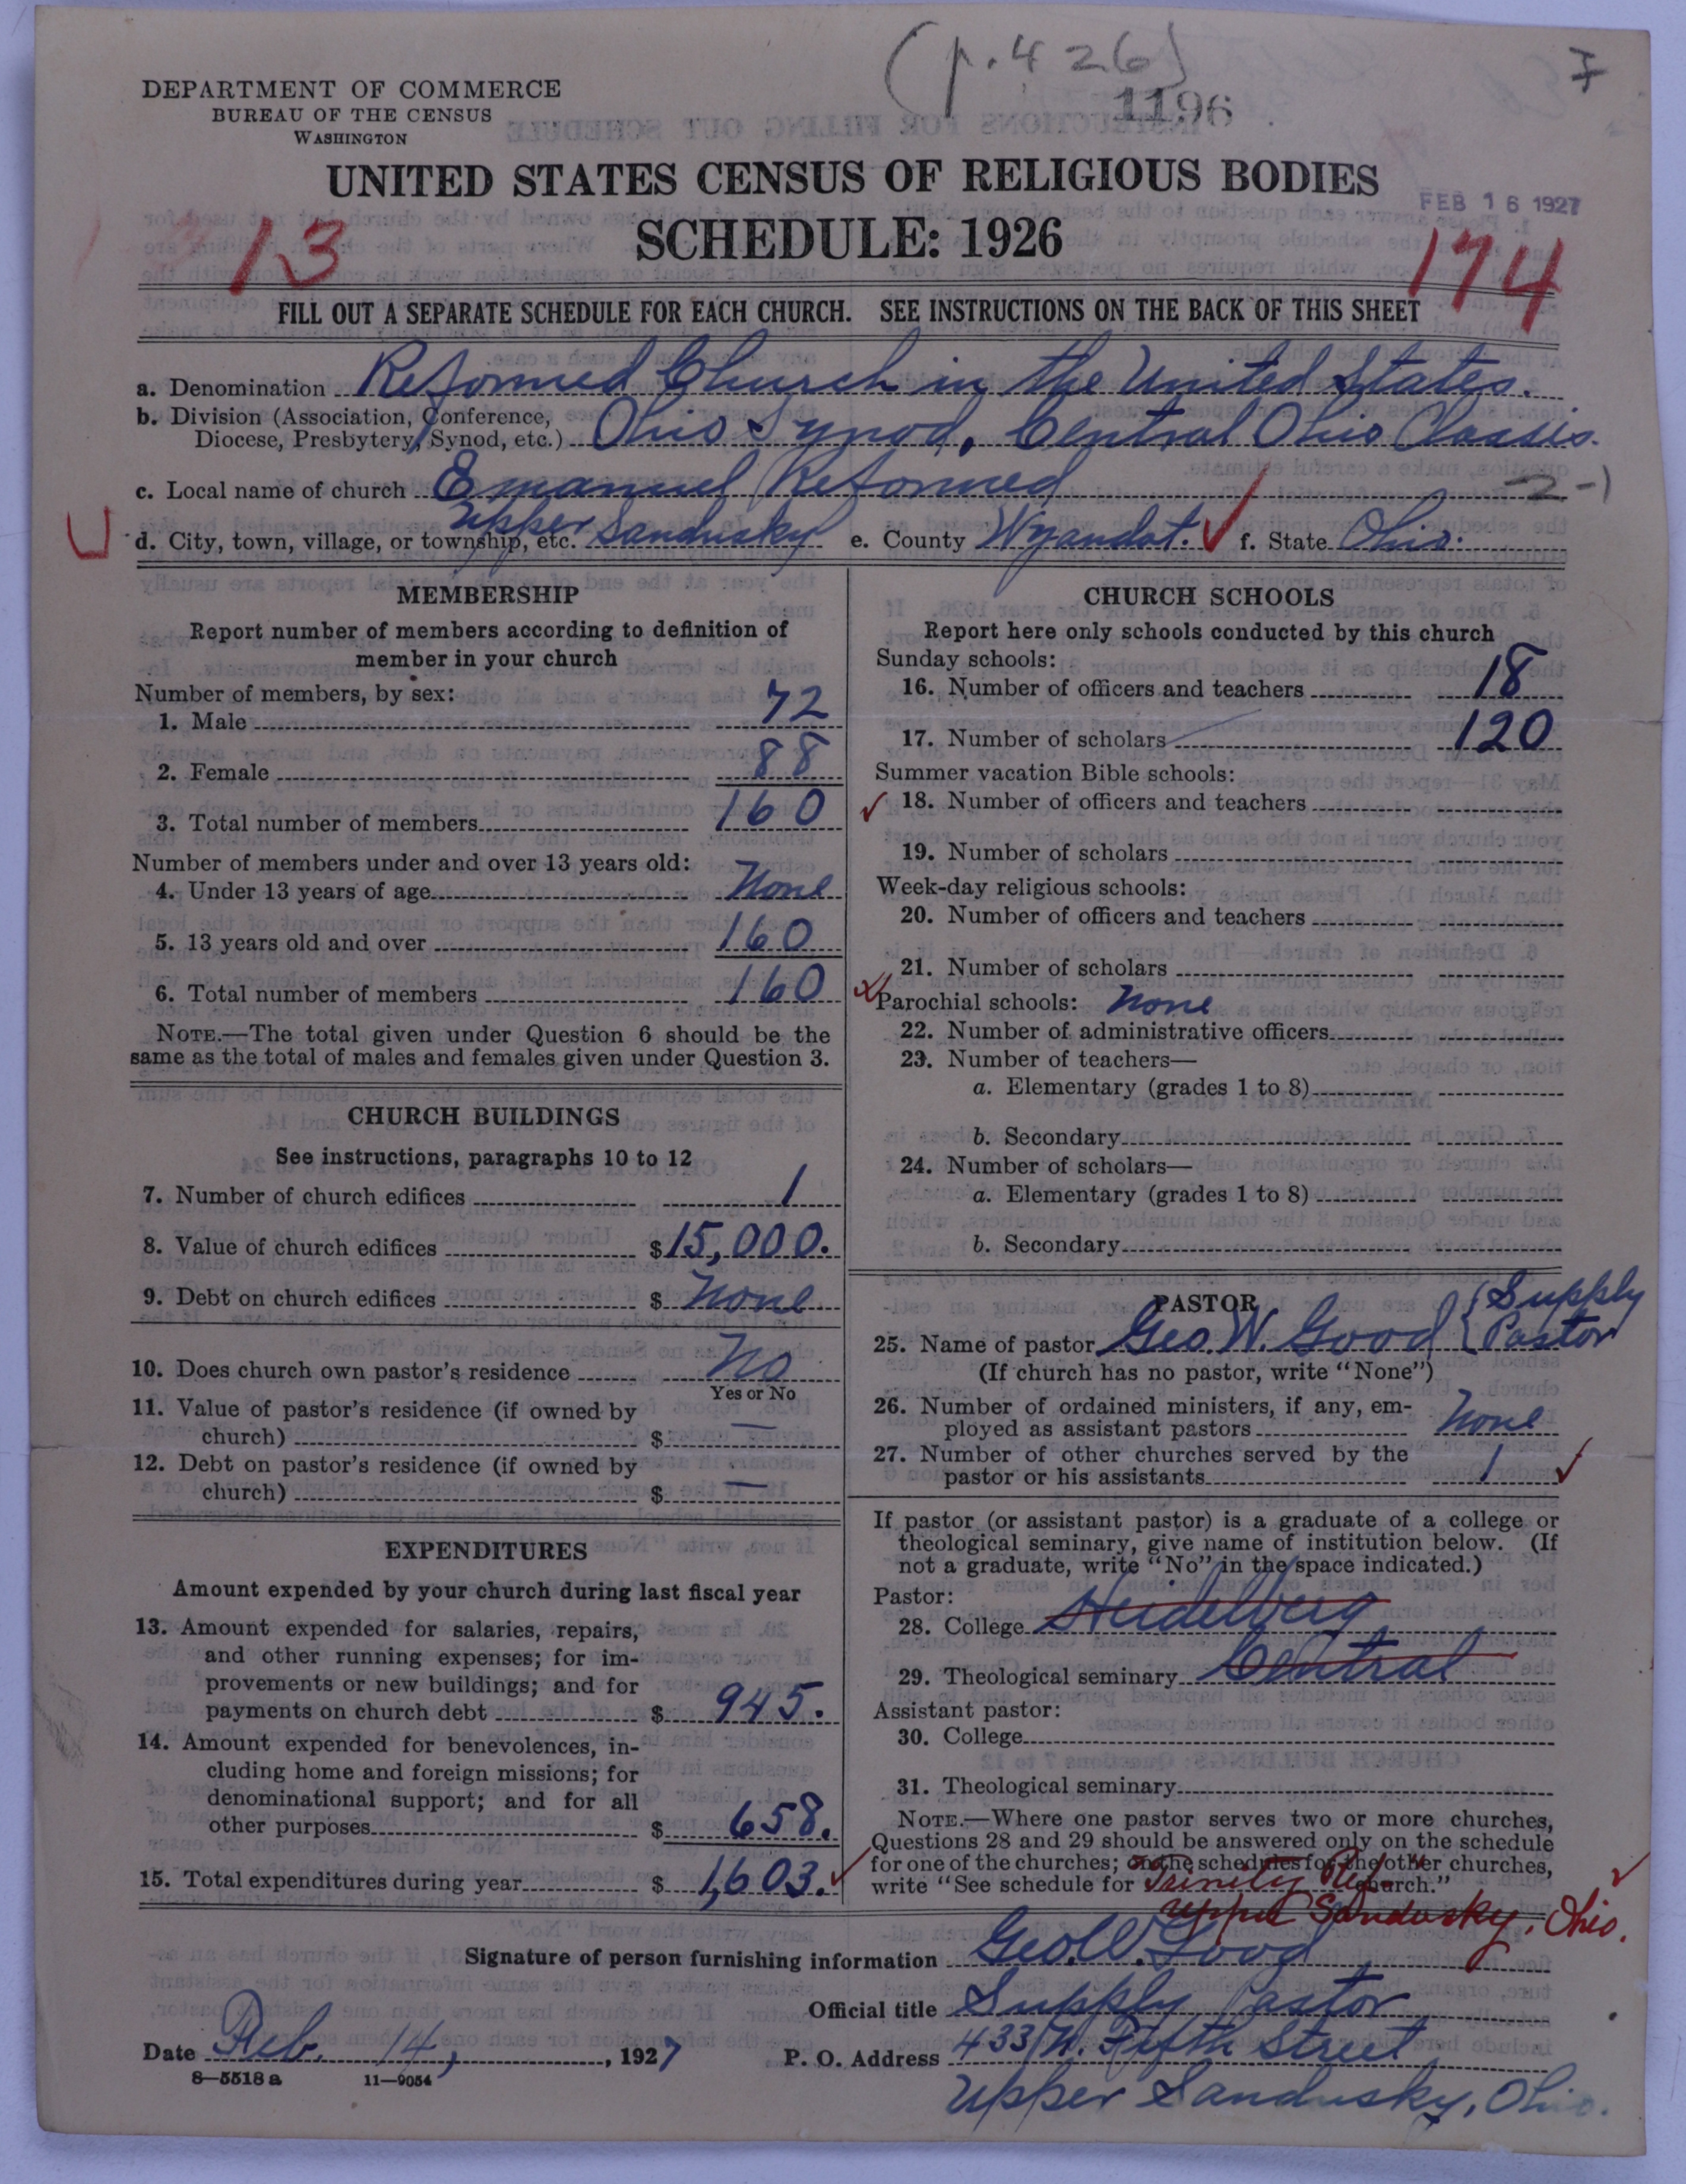 (p. 426)
7
DEPARTMENT OF COMMERCE
BUREAU OF THE CENSUS
WASHINGTON
1196
UNITED STATES CENSUS OF RELIGIOUS BODIES
FEB 16 1927
SCHEDULE: 1926
13
174
FILL OUT A SEPARATE SCHEDULE FOR EACH CHURCH. SEE INSTRUCTIONS ON THE BACK OF THIS SHEET
a. Denomination Reformed Church in the United States.
b. Division (Association, Conference,
Diocese, Presbytery, Synod, etc.) Ohio Synod, Central Ohio Classis.
c. Local name of church Emanuel Reformed
-2-1
U
d. City, town, village, or township, etc. Upper Sandusky e. County Wyandot. f. State Ohio.
MEMBERSHIP
Report number of members according to definition of
member in your church
Number of members, by sex:
1. Male 72
2. Female 88
3. Total number of members 160
Number of members under and over 13 years old:
4. Under 13 years of age None
5. 13 years old and over 160
6. Total number of members 160
NOTE.—The total given under Question 6 should be the
same as the total of males and females given under Question 3.
CHURCH BUILDINGS
See instructions, paragraphs 10 to 12
7. Number of church edifices 1
8. Value of church edifices $15,000.
9. Debt on church edifices $ None
10. Does church own pastor's residence No
Yes or No
11. Value of pastor's residence (if owned by
church) $ —
12. Debt on pastor's residence (if owned by
church) $ —
EXPENDITURES
Amount expended by your church during last fiscal year
13. Amount expended for salaries, repairs,
and other running expenses; for im-
provements or new buildings; and for
payments on church debt $ 945.
14. Amount expended for benevolences, in-
cluding home and foreign missions; for
denominational support; and for all
other purposes $ 658.
15. Total expenditures during year $ 1,603.
CHURCH SCHOOLS
Report here only schools conducted by this church
Sunday schools:
16. Number of officers and teachers 18
17. Number of scholars 120
Summer vacation Bible schools:
18. Number of officers and teachers
19. Number of scholars
Week-day religious schools:
20. Number of officers and teachers
21. Number of scholars
Parochial schools: None
22. Number of administrative officers
23. Number of teachers—
a. Elementary (grades 1 to 8)
b. Secondary
24. Number of scholars—
a. Elementary (grades 1 to 8)
b. Secondary
PASTOR
25. Name of pastor Geo. W. Good { Supply Pastor
(If church has no pastor, write "None")
26. Number of ordained ministers, if any, em-
ployed as assistant pastors None
27. Number of other churches served by the
pastor or his assistants 1
If pastor (or assistant pastor) is a graduate of a college or
theological seminary, give name of institution below. (If
not a graduate, write "No" in the space indicated.)
Pastor:
28. College Heidelberg
29. Theological seminary Central
Assistant pastor:
30. College
31. Theological seminary
NOTE.—Where one pastor serves two or more churches,
Questions 28 and 29 should be answered only on the schedule
for one of the churches; on the schedules for the other churches,
write "See schedule for Trinity Ref. church."
Upper Sandusky, Ohio.
Signature of person furnishing information Geo. W. Good
Official title Supply Pastor
Date Feb. 14, 1927 P. O. Address 433 N. Fifth Street
8—5518 a 11—9054
Upper Sandusky, Ohio.